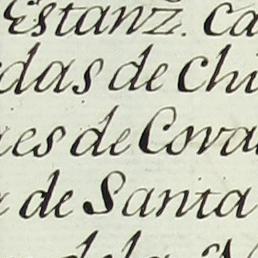 Estanz. Ca
das de Chi
es de Cova
de Santa
dela